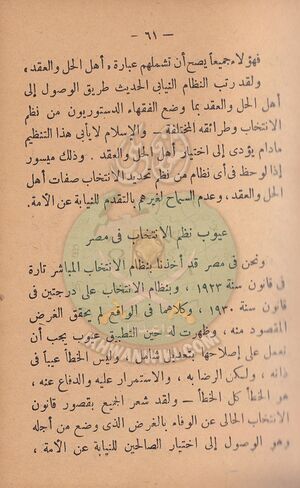 — ٦١ —
فهؤلاء جميعاً يصح أن تشملهم عبارة « أهل الحل والعقد »
ولقد رتب النظام النيابى الحديث طريق الوصول إلى
أهل الحل والعقد بما وضع الفقهاء الدستوريون من نظم
الانتخاب وطرائقه المختلفة — والإسلام لا يأبى هذا التنظيم
مادام يؤدى إلى اختيار أهل الحل والعقد . وذلك ميسور
إذا لوحظ فى أى نظام من نظم تحديد الانتخاب صفات أهل
الحل والعقد ، وعدم السماح لغيرهم بالتقدم للنيابة عن الأمة.
عيوب نظم الانتخاب فى مصر
ونحن فى مصر قد أخذنا بنظام الانتخاب المباشر تارة
فى قانون سنة ١٩٢٣ ، وبنظام الانتخاب على درجتين فى
قانون سنة ١٩٣٠، وكلاهما فى الواقع لم يحقق الغرض
المقصود منه ، وظهرت له حين التطبيق عيوب يجب أن
نعمل على إصلاحها بتعديل شامل . وليس الخطأ عيباً فى
ذاته ، ولكن الرضا به ، والاستمرار عليه والدفاع عنه ،
هو الخطأ كل الخطأ — ولقد شعر الجميع بقصور قانون
الانتخاب الحالى عن الوفاء بالغرض الذى وضع من أجله
وهو الوصول إلى اختيار الصالحين للنيابة عن الأمة ،